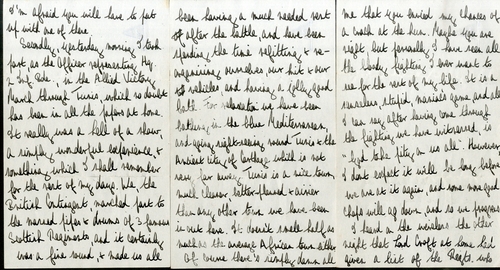 I'm afraid you will have to put
up with one of these.
Secondly, yesterday morning I took
part as the Officer representing
in the Allied Victory
March through Tunis, which no doubt
has been in all the papers at home.
It really was a hell of a show,
a simply wonderful experience &
something which I shall remember
for the rest of my days. We, the
British Contingent marched past to
the massed pipes & drums of 3 famous
Scottish Regiments, and it certainly
was a fine sound, & made us all
been having a much needed rest
after the battle, and have been
spending the time refitting & re-
organising ourselves our kit & our
vehicles and having a jolly good
bath. For relaxation we have been
bathing in the blue Mediterranean,
and going sight-seeing round Tunis & the
Ancient City of Carthage which is not
very far away. Tunis is a nice town,
much cleaner better-planned & airier
than any other town we have been
in out here. It doesn't smell half as
much as the average African town either.
Of course there's simply damn all
me that you envied my chances of
a whack at the hun. Maybe you are
right but personally I have seen all
the bloody fighting I ever want to
see for the rest of my life. It is a
senseless stupid, maniacs game, and all
I can say after having come through
the fighting we have witnessed, is
"God take pity on us all". However
I don't expect it will be long before
we are at it again, and some more good
chaps will go down, and so we progress
I heard on the wireless the other
night that Lord Croft at home had
given a list of the Regts. who